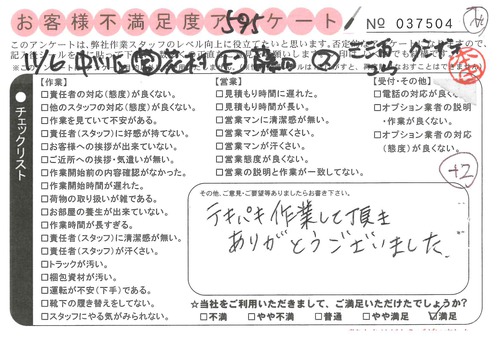 お客様不満足度アンケート
595
No 037504
このアンケートは、弊社作業スタッフのレベル向上に役立てたいと思います。
11/6
【作業】
□責任者の対応(態度)が良くない。
□他のスタッフの対応(態度)が良くない。
□作業を見ていて不安がある。
□責任者(スタッフ)に好感が持てない。
□お客様への挨拶が出来ていない。
□ご近所への挨拶・気遣いが無い。
□作業開始前の内容確認がなかった。
□作業開始時間が遅れた。
□荷物の取り扱いが雑である。
□お部屋の養生が出来ていない。
□作業時間が長すぎる。
□責任者(スタッフ)に清潔感が無い。
□責任者(スタッフ)が汗くさい。
□トラックが汚い。
□梱包資材が汚い。
□運転が不安(下手)である。
□靴下の履き替えをしてない。
□スタッフにやる気がみられない。
チェックリスト
【営業】
□見積もり時間に遅れた。
□見積もり時間が長い。
□営業マンに清潔感が無い。
□営業マンが煙草くさい。
□営業マンが汗くさい。
□営業態度が良くない。
□営業の説明と作業が一致してない。
【受付・その他】
□電話の対応が良く
□オプション業者の説明
・作業が良くない。
□オプション業者の対応
(態度)が良くない。
+2
その他、ご意見・ご要望等ありましたらお書き下さい。
テキパキ作業して頂き
ありがとうございました
☆当社をご利用いただきまして、ご満足いただけたでしょうか?
□不満 □やや不満 □普通 □やや満足 ☑満足